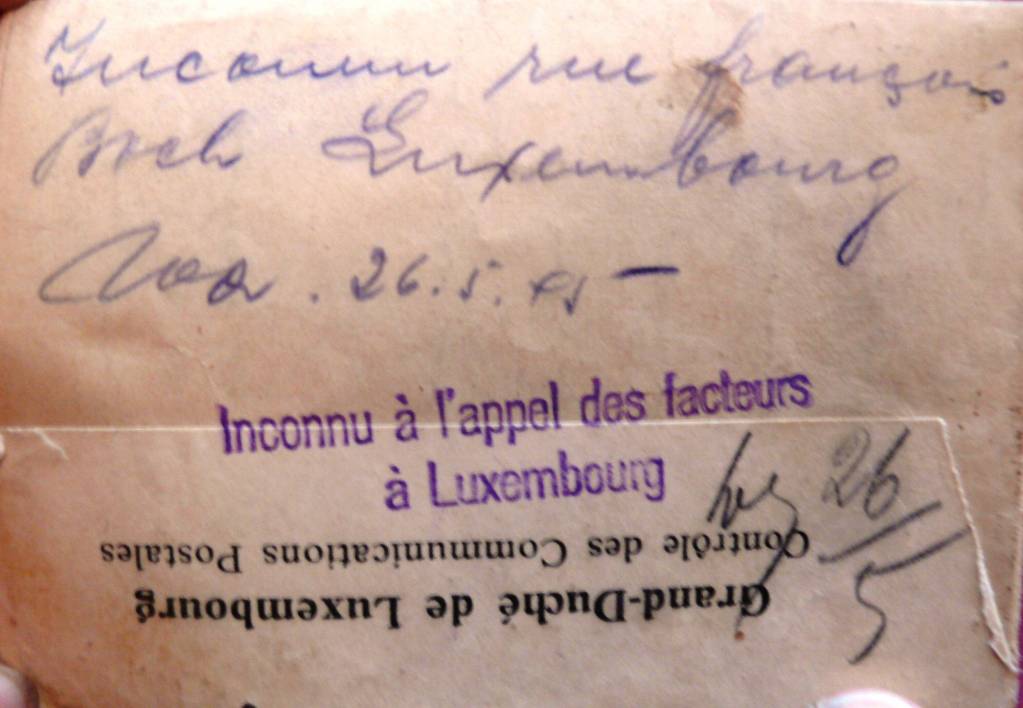 Inconnu rue françois
Boch Luxembourg
26.5.45 –
Inconnu à l'appel des facteurs
à Luxembourg
26
5
Grand-Duché de Luxembourg
Contrôle des Communications Postales